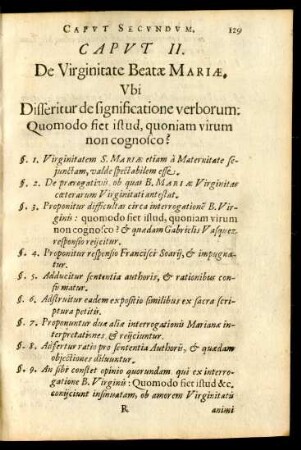 CAPVT SECVNDVM. 129
CAPVT II.
De Virginitate Beatæ MARIÆ.
Vbi
Disseritur de significatione verborum:
Quomodo fiet istud, quoniam virum
non cognosco?
§. 1. Virginitatem S. MARIÆ etiam à Maternitate se-
junctam, valde spectabilem esse.
§. 2. De prærogativis, ob quas B. MARIÆ Virginitas
cæterarum Virginitati antestat.
§. 3. Proponitur difficultas circa interrogationē B. Vir-
ginis: quomodo fiet istud, quoniam virum
non cognosco? & quædam Gabrielis Vasquez
responsio reijcitur.
§. 4. Proponitur responsio Francisci Suarij, & impugna-
tur.
§. 5. Adducitur sententia authoris, & rationibus con-
firmatur.
§. 6. Adstruitur eadem expositio similibus ex sacra scri-
ptura petitis.
§. 7. Proponuntur duæ aliæ interrogationis Marianæ in-
terpretationes, & reijciuntur.
§. 8. Adfertur ratio pro sententia Authoris, & quædam
objectiones diluuntur.
§. 9. An sibi constet opinio quorundam qui ex interro-
gatione B. Virginis: Quomodo fiet istud &c.
conijciunt insinuatam, ob amorem Virginitatis
R animi